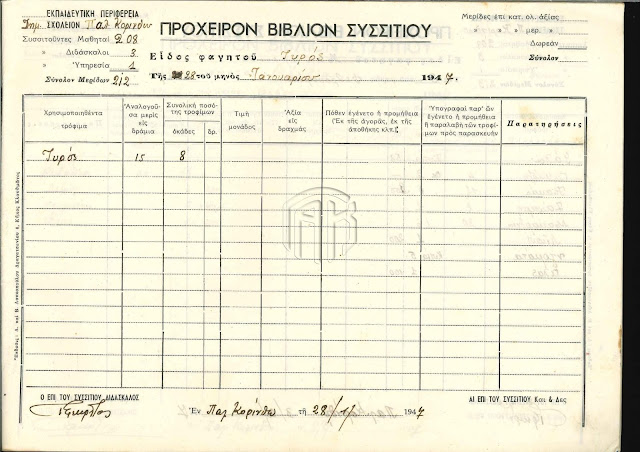 ΕΚΠΑΙΔΕΥΤΙΚΗ ΠΕΡΙΦΕΡΕΙΑ
Δημ. ΣΧΟΛΕΙΟΝ Παλ. Κορίνθου
Συσσιτοῦντες Μαθηταὶ 208
» Διδάσκαλοι 3
» Ὑπηρεσία 1
Σύνολον Μερίδων 212
ΠΡΟΧΕΙΡΟΝ ΒΙΒΛΙΟΝ ΣΥΣΣΙΤΙΟΥ
Εἶδος φαγητοῦ Τυρός
Τῆς 28 τοῦ μηνὸς Ἰανουαρίου 1947.
Μερίδες ἐπὶ κατ. ὀλ. ἀξίας
» » μερ. »
» Δωρεὰν
Σύνολον
Χρησιμοποιηθέντα τρόφιμα
Ἀναλογοῦσα μερὶς εἰς δράμια
Συνολικὴ ποσότης τροφίμων
ὀκάδες δρ.
Τιμὴ μονάδος
Ἀξία εἰς δραχμάς
Πόθεν ἐγένετο ἡ προμήθεια (Ἐκ τῆς ἀγορᾶς, ἐκ τῆς ἀποθήκης κλπ.)
Ὑπογραφαὶ παρ' ὧν ἐγένετο ἡ προμήθεια ἢ παραλαβὴ τῶν τροφίμων πρὸς παρασκευήν
Παρατηρήσεις
Τυρός 15 8
Ο ΕΠΙ ΤΟΥ ΣΥΣΣΙΤΙΟΥ ΔΙΔΑΣΚΑΛΟΣ
Ἐν Παλ. Κορίνθῳ τῇ 28/1/1947
ΑΙ ΕΠΙ ΤΟΥ ΣΥΣΣΙΤΙΟΥ Και & Δες